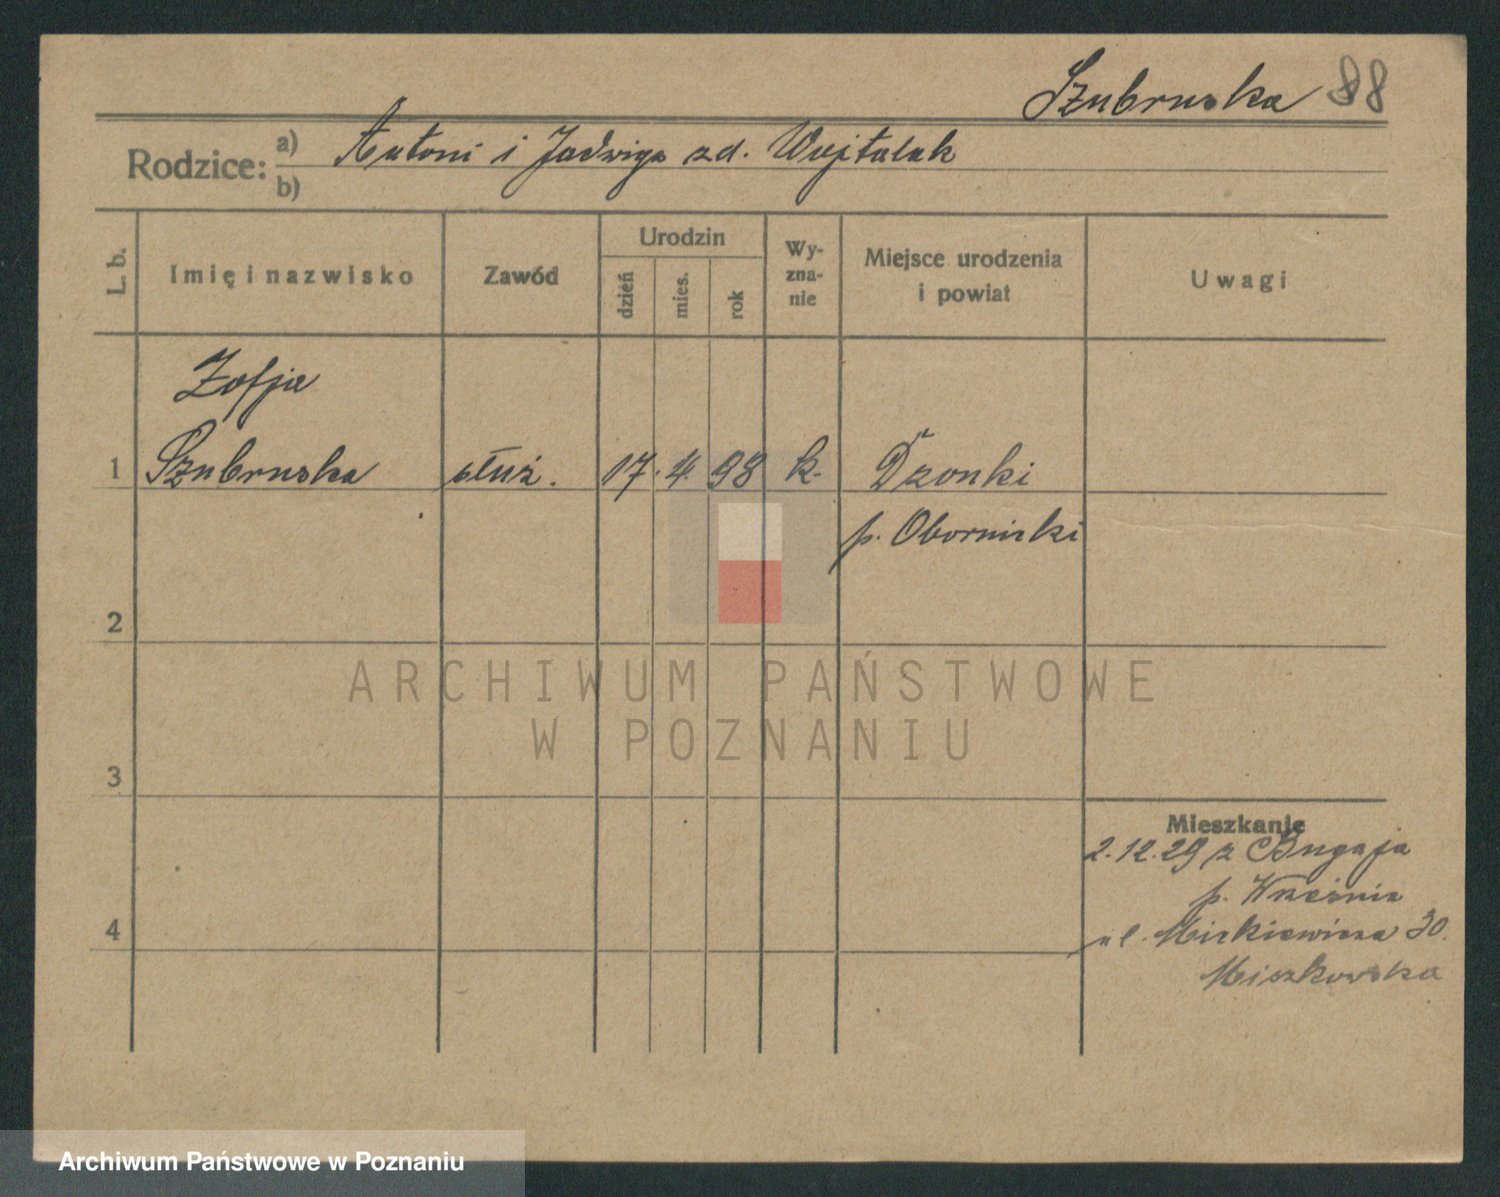 Szubruska 88
Rodzice: a) Antoni i Jadwiga zd. Wojtalak
b)
L. b.
Imię i nazwisko
Zawód
Urodzin
dzień
mies.
rok
Wy-
zna-
nie
Miejsce urodzenia
i powiat
Uwagi
Zofja
1 Szubruska służ. 17. 4. 98 k. Dzonki
p. Obornicki
2
3
Mieszkanie
2.12.29 z Bugaja
p. Września
4
ul. Mickiewicza 30.
Miszkowska
ARCHIWUM PAŃSTWOWE
W POZNANIU
Archiwum Państwowe w Poznaniu